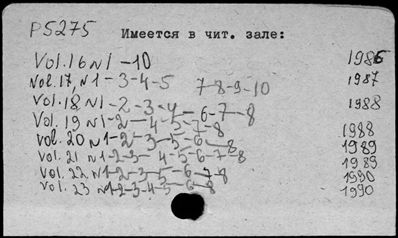 P5275
Имеется в чит. зале:
Vol. 16 N1 - 10 1986
Vol. 17, N1 - 3 - 4 - 5 7-8-9-10 1987
Vol. 18, N1 - 2 - 3 - 4 - 6 - 7 - 8 1988
Vol. 19 N1 - 2 - 4 - 5 - 7 - 8 1988
Vol. 20 N1 - 2 - 3 - 5 - 6 - 8 1989
Vol. 21 N1-2-3- 4-5-6-7-8 1989
Vol. 22 N1-2-3-5-6-7-8 1990
Vol. 23 N1-2-3-4-5-6-8 1990